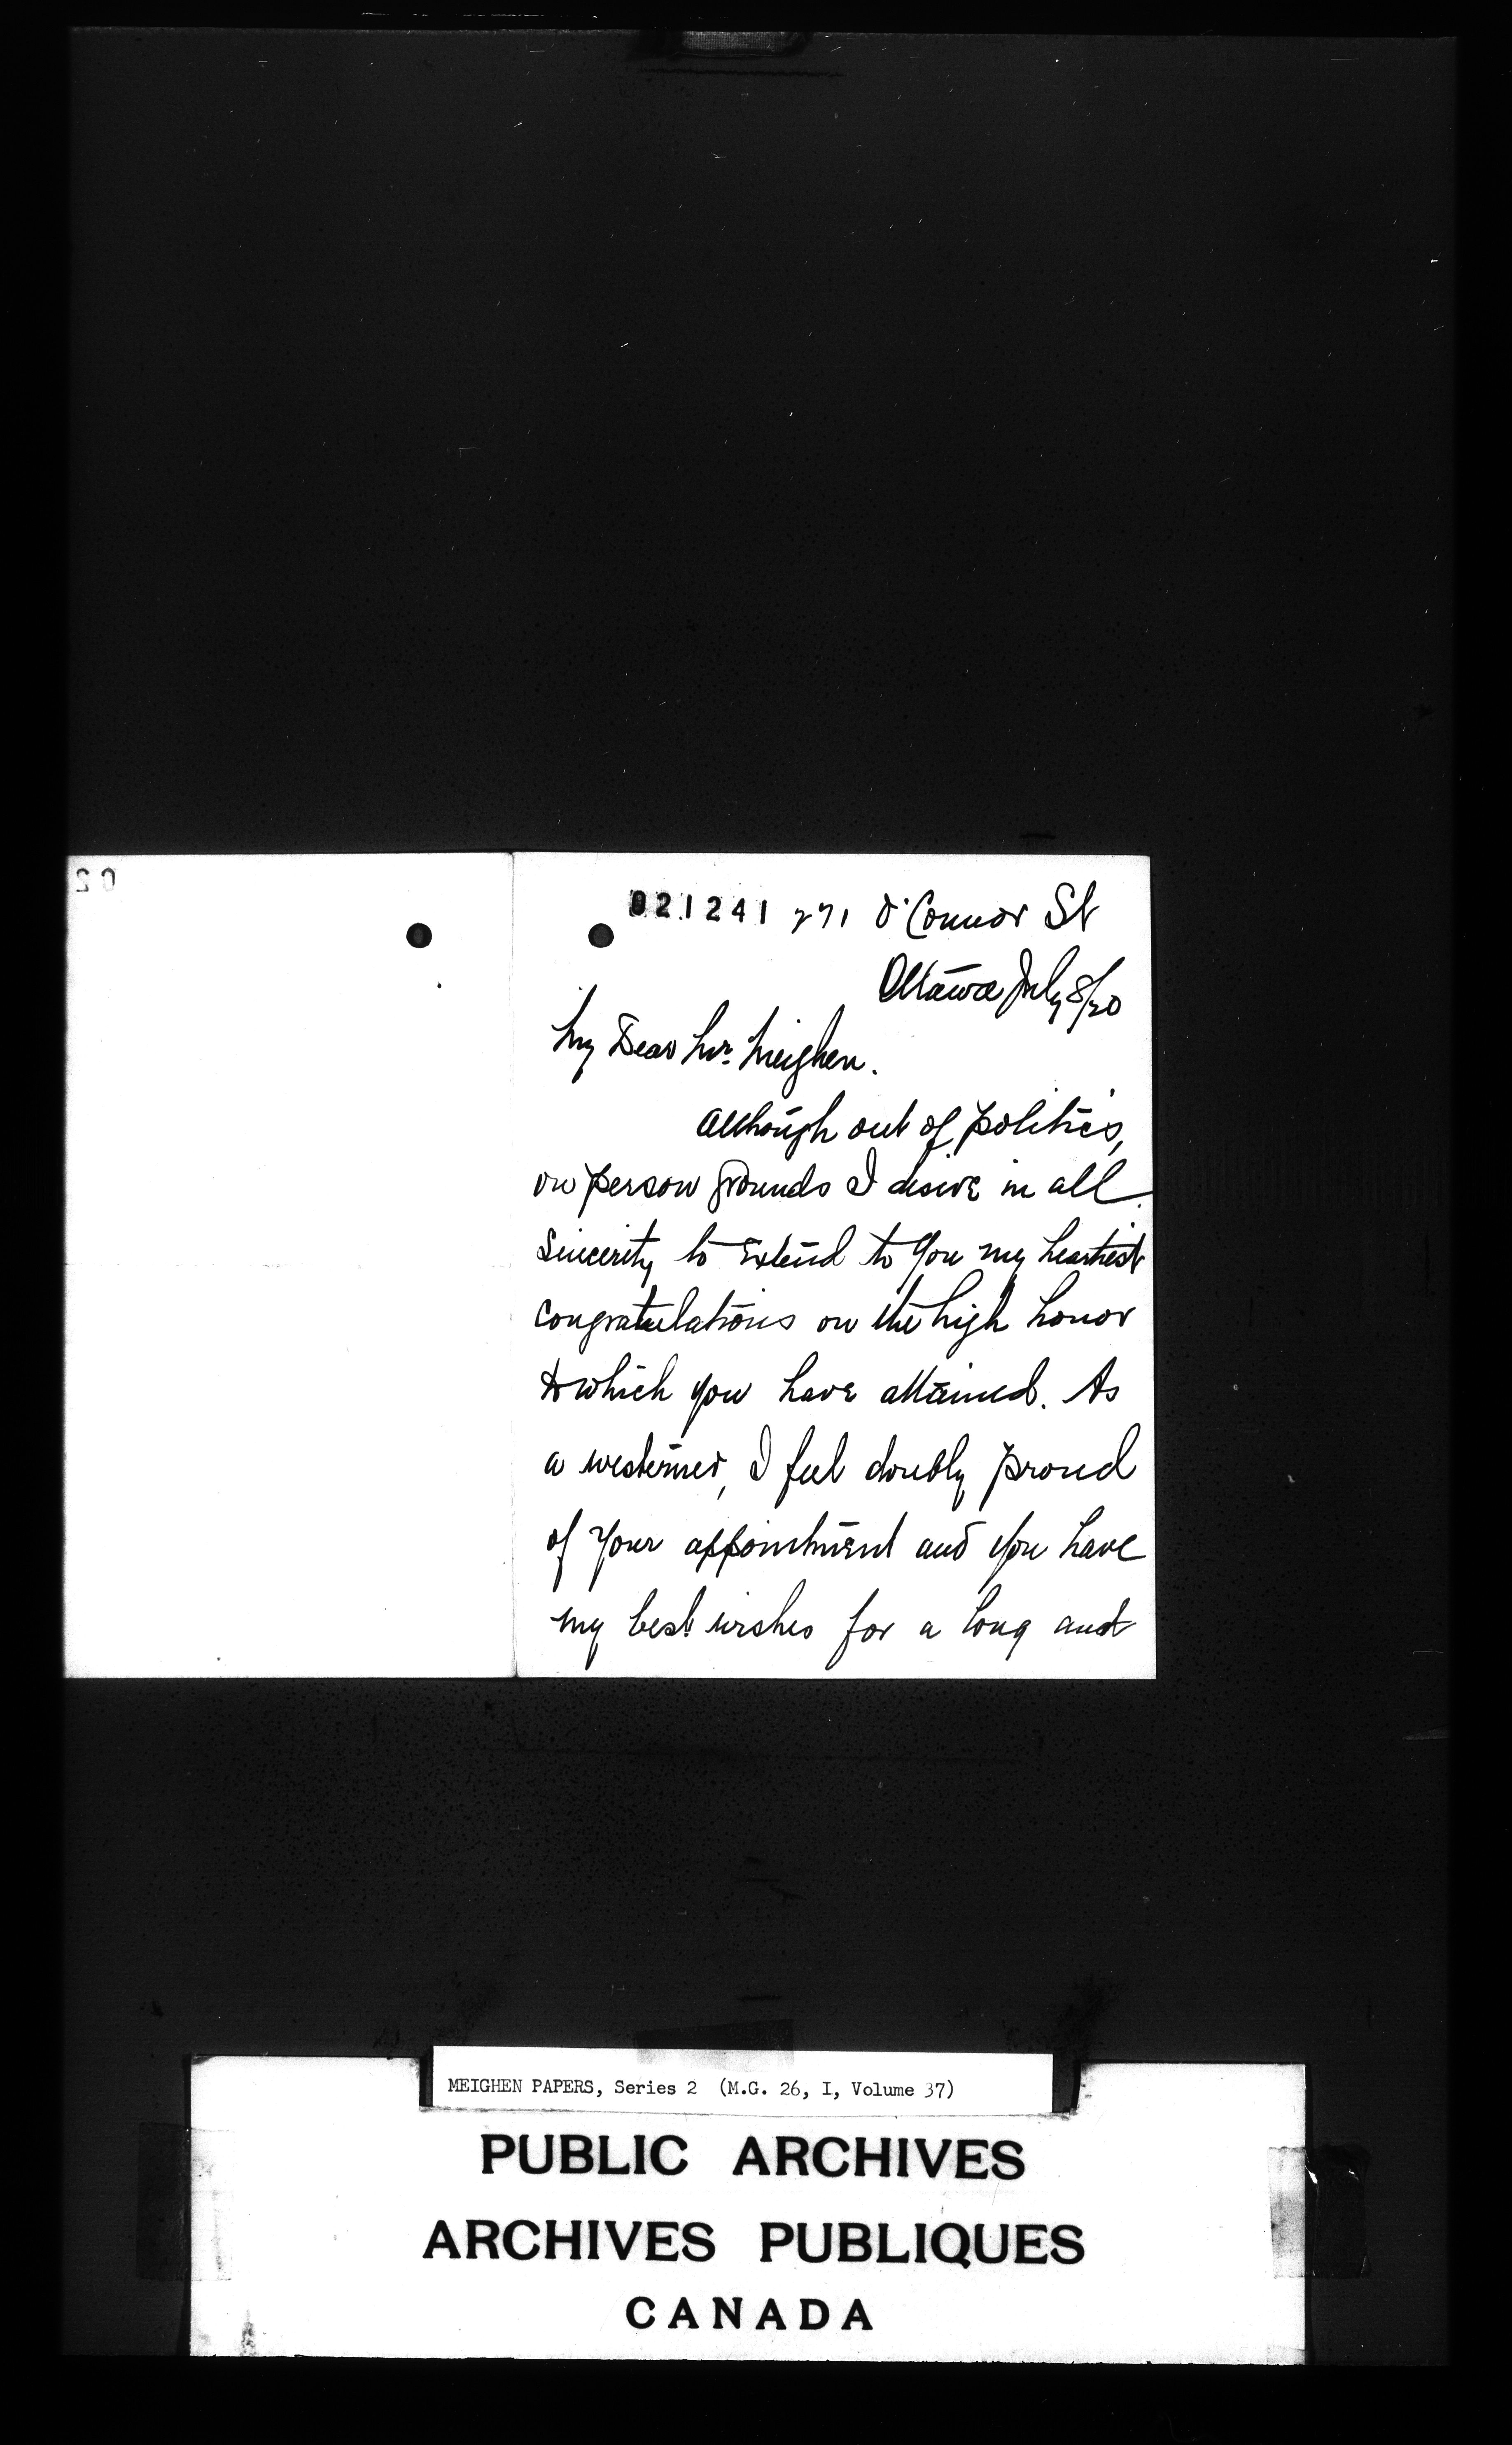 021241 271 O'Connor St
Ottawa July 8/20
My Dear Mr. Meighen.
Although out of politics,
on person grounds I desire in all
sincerity to extend to you my heartiest
congratulations on the high honor
to which you have attained. As
a westerner, I feel doubly proud
of your appointment and you have
my best wishes for a long and
MEIGHEN PAPERS, Series 2 (M.G. 26, I, Volume 37)
PUBLIC ARCHIVES
ARCHIVES PUBLIQUES
CANADA